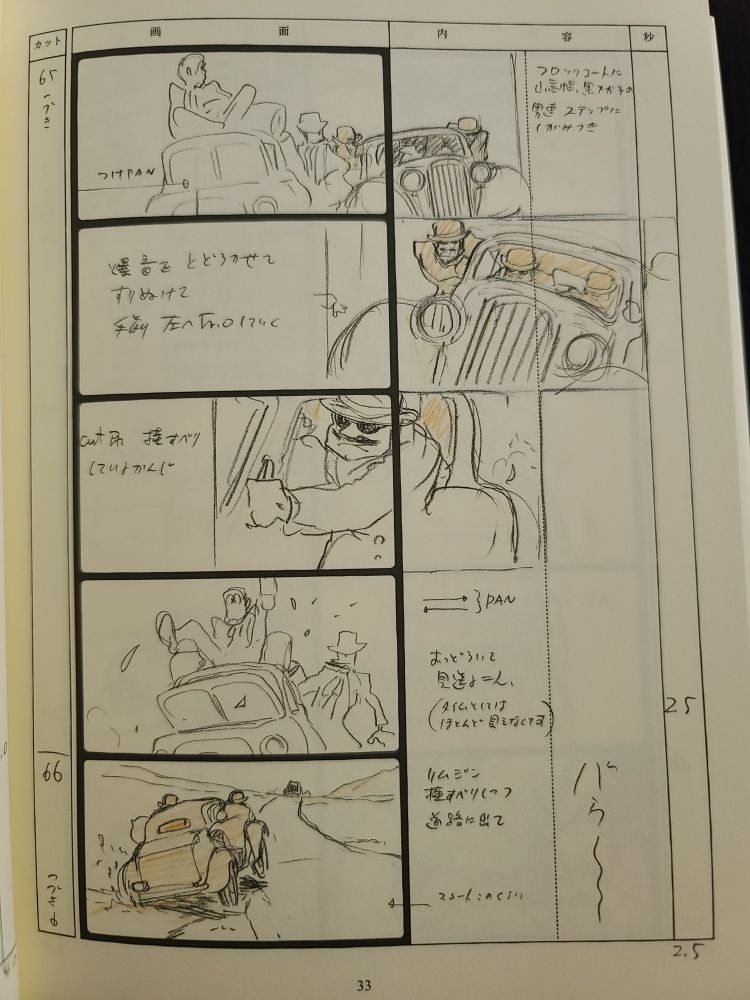 カット 画面 内容 秒
65
つづき
つけPAN
フロックコートに
山高帽、黒メガネの
男達 ステップに
しがみつき
爆音を とどろかせて
すりぬけて
手前 左へ
cut尻 横すべり
しているかんじ
PAN
おっどろいて
見送る二人、
(タイムとしては
ほとんど見えなくてす)
25
66
つづき
リムジン
横すべりしつつ
道路に出て
スタートこのくらい
バら〜〜
2.5
33